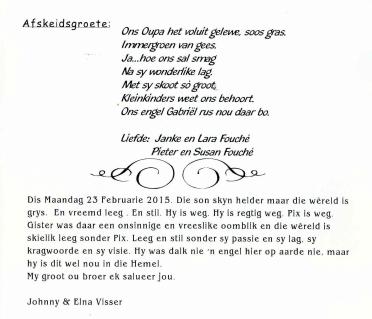 Afskeidsgroete:
Ons Oupa het voluit gelewe, soos gras.
Immergroen van gees.
Ja...hoe ons sal smag
Na sy wonderlike lag.
Met sy skoot so groot,
Kleinkinders weet ons behoort.
Ons engel Gabriël rus nou daar bo.
Liefde: Janke en Lara Fouché
Pieter en Susan Fouché
Dis Maandag 23 Februarie 2015. Die son skyn helder maar die wêreld is
grys. En vreemd leeg. En stil. Hy is weg. Hy is regtig weg. Pix is weg.
Gister was daar een onsinnige en vreeslike oomblik en die wêreld is
skielik leeg sonder Pix. Leeg en stil sonder sy passie en sy lag, sy
kragwoorde en sy visie. Hy was dalk nie 'n engel hier op aarde nie, maar
hy is dit wel nou in die Hemel.
My groot ou broer ek salueer jou.
Johnny & Elna Visser